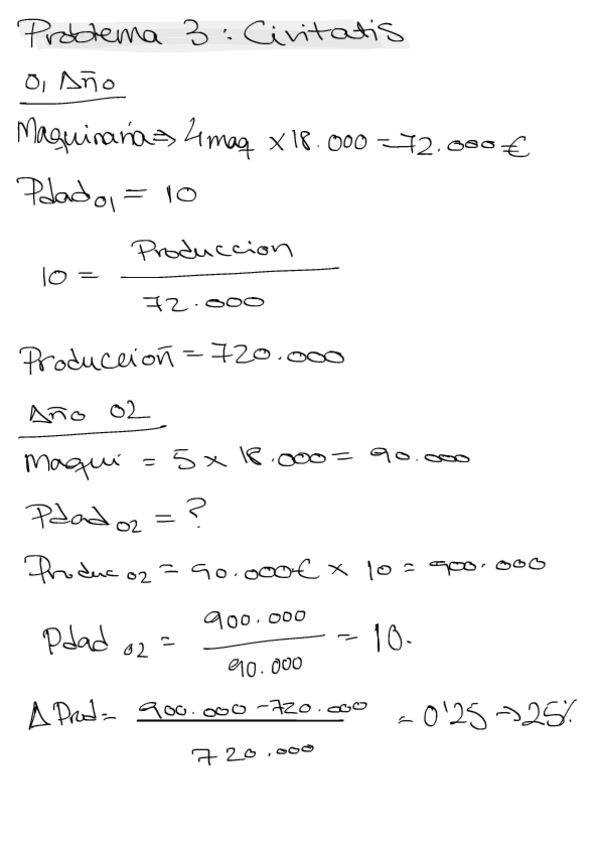 Problema 3 : Civitatis
01 Año
Maquinaria ⇒ 4 maq × 18.000 = 72.000 €
Pdad 01 = 10
10 = Produccion / 72.000
Produccion = 720.000
Año 02
Maqui = 5 × 18.000 = 90.000
Pdad 02 = ?
Produc 02 = 90.000€ × 10 = 900.000
Pdad 02 = 900.000 / 90.000 = 10.
Δ Prod = 900.000 - 720.000 / 720.000 = 0'25 → 25%